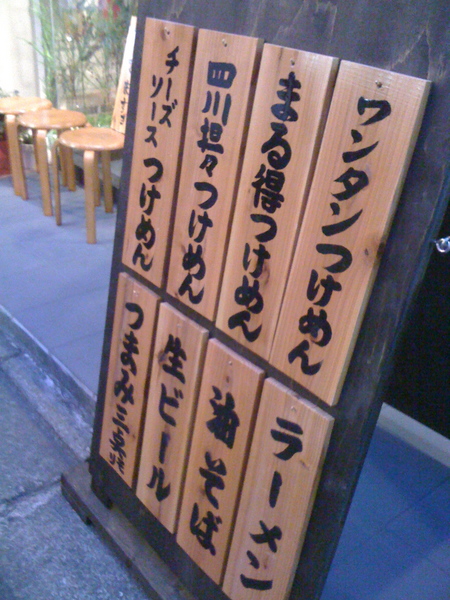 ワンタンつけめん
まる得つけめん
四川担々つけめん
チーズソースつけめん
ラーメン
油そば
生ビール
つまみ三点